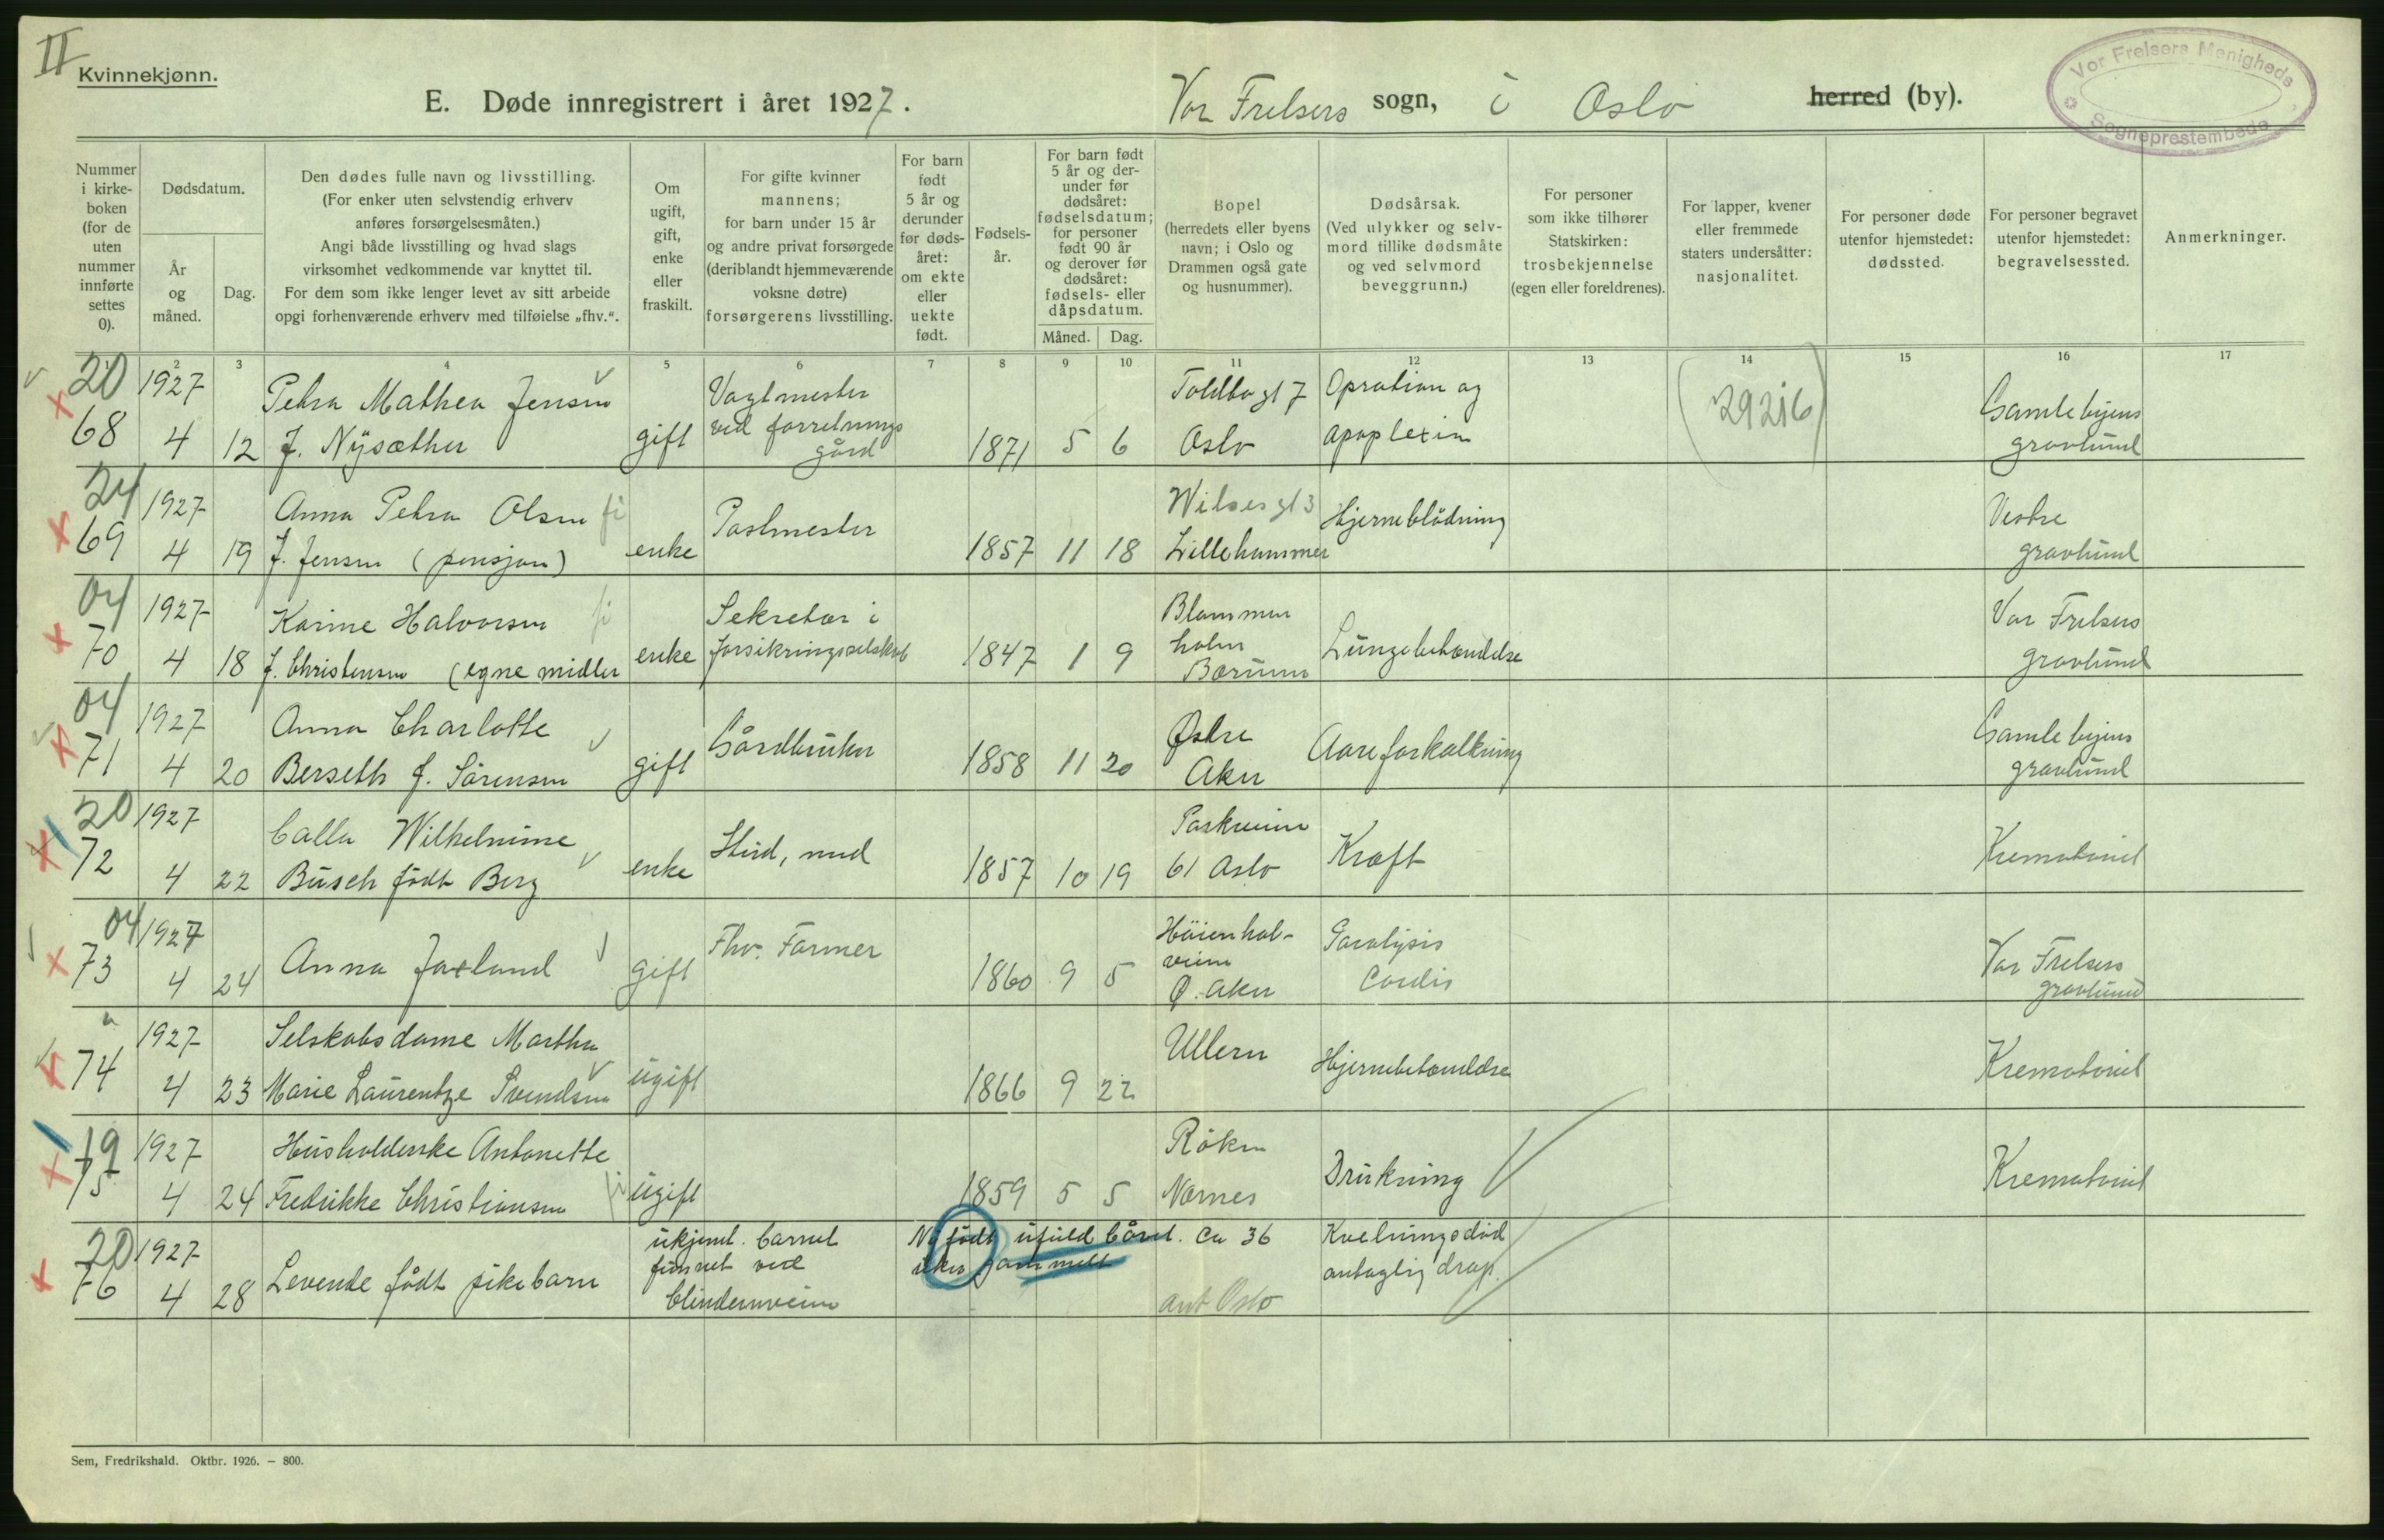 II
Kvinnekjønn.
E. Døde innregistrert i året 1927.
Vor Frelsers sogn, i Oslo herred (by).
Vor Frelsers Menigheds
Sogneprestembede
Nummer i kirke- boken (for de uten nummer innførte settes 0).
Dødsdatum.
År og måned.
Dag.
Den dødes fulle navn og livsstilling.
(For enker uten selvstendig erhverv
anføres forsørgelsesmåten.)
Angi både livsstilling og hvad slags
virksomhet vedkommende var knyttet til.
For dem som ikke lenger levet av sitt arbeide
opgi forhenværende erhverv med tilføielse „fhv.“.
Om ugift, gift, enke eller fraskilt.
For gifte kvinner
mannens;
for barn under 15 år
og andre privat forsørgede
(deriblandt hjemmeværende
voksne døtre)
forsørgerens livsstilling.
For barn født 5 år og derunder før døds- året: om ekte eller uekte født.
Fødsels- år.
For barn født
5 år og der-
under før
dødsåret:
fødselsdatum;
for personer
født 90 år
og derover før
dødsåret:
fødsels- eller
dåpsdatum.
Måned. Dag.
Bopel
(herredets eller byens
navn; i Oslo og
Drammen også gate
og husnummer).
Dødsårsak.
(Ved ulykker og selv-
mord tillike dødsmåte
og ved selvmord
beveggrunn.)
For personer
som ikke tilhører
Statskirken:
trosbekjennelse
(egen eller foreldrenes).
For lapper, kvener
eller fremmede
staters undersåtter:
nasjonalitet.
For personer døde
utenfor hjemstedet:
dødssted.
For personer begravet
utenfor hjemstedet:
begravelsessted.
Anmerkninger.
2 3 4 5 6 7 8 9 10 11 12 13 14 15 16 17
20 1927 Petra Mathea Jensen Vagtmester Toldbogt 7 Opration og (29216) Gamlebyens
68 4 12 f. Nysæther gift ved forretnings gård 1871 5 6 Oslo apoplexia gravlund
24 1927 Anna Petra Olsen fi Postmester Wilsesgt 3 Hjerneblödning Vestre
69 4 19 f. Jensen (pensjon) enke 1857 11 18 Lillehammer gravlund
04 1927 Karine Halvorsen fi Sekretær i Blommen Vor Frelsers
70 4 18 f. Christensen (egne midler enke forsikringsselskab 1847 1 9 holm Lungebetændelse gravlund
Bærum
04 1927 Anna Charlotte Gårdbruker Østre Aareforkalkning Gamlebyens
71 4 20 Berseth f. Sörensen gift 1858 11 20 Aker gravlund
20 1927 Calla Wilhelmine Stud, med Krematoriet
72 4 22 Busch födt Berg enke 1857 10 19 61 Oslo Kræft
04 1927 Fhv. Farmer Paralysis Vor Frelsers
73 4 24 Anna gift 1860 9 5 veien Cordis gravlund
Ø. Aker
1927 Selskabsdame Martha Ullern Hjernebetændelse Krematoriet
74 4 23 Marie Laurentze Svendsen ugift 1866 9 22
19 1927 Husholderske Antonette Röken Drukning Krematoriet
75 4 24 Fredrikke Christiansen fi ugift 1859 5 5 Nærnes
20 1927 ukjent. barnet Nyfödt ufuldbåret. Ca 36 Kvelningsdöd
76 4 28 Levende födt pikebarn funnet ved uker gammelt antaglig drap.
blindernveien ant Oslo
Sem, Fredrikshald. Oktbr. 1926. – 800.